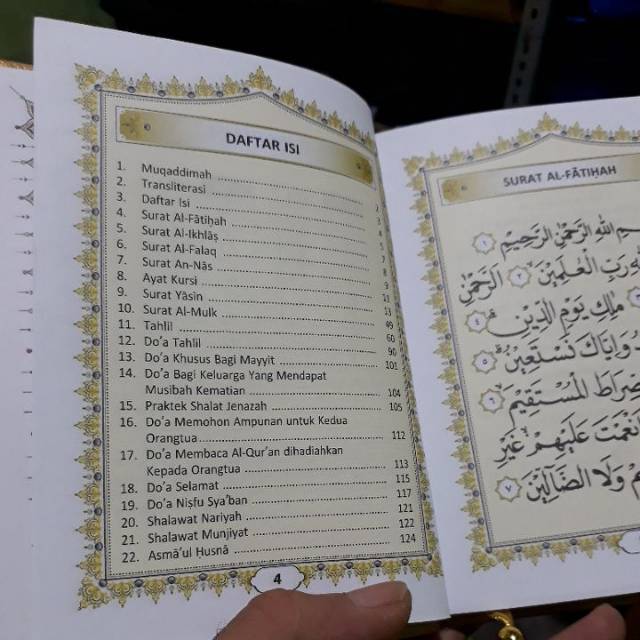 DAFTAR ISI
1. Muqaddimah
2. Transliterasi
3. Daftar Isi
4. Surat Al-Fātiḥah
5. Surat Al-Ikhlāṣ 7
6. Surat Al-Falaq 8
7. Surat An-Nās 9
8. Ayat Kursi 11
9. Surat Yāsin 13
10. Surat Al-Mulk 49
11. Tahlil 60
12. Do'a Tahlil 90
13. Do'a Khusus Bagi Mayyit 101
14. Do'a Bagi Keluarga Yang Mendapat
Musibah Kematian 104
15. Praktek Shalat Jenazah 105
16. Do'a Memohon Ampunan untuk Kedua
Orangtua 112
17. Do'a Membaca Al-Qur'an dihadiahkan
Kepada Orangtua 113
18. Do'a Selamat 115
19. Do'a Niṣfu Sya'ban 117
20. Shalawat Nariyah 121
21. Shalawat Munjiyat 122
22. Asmā'ul Ḥusnā 124
4
SURAT AL-FĀTIḤAH
اللهِ الرَّحْمٰنِ الرَّحِيْمِ ١
رَبِّ الْعٰلَمِيْنَ ٢ الرَّحْمٰنِ
مٰلِكِ يَوْمِ الدِّيْنِ ٤
وَاِيَّاكَ نَسْتَعِيْنُ ٥
الْمُسْتَقِيْمَ ٦
اَنْعَمْتَ عَلَيْهِمْ غَيْرِ
وَلَا الضَّآلِّيْنَ ٧